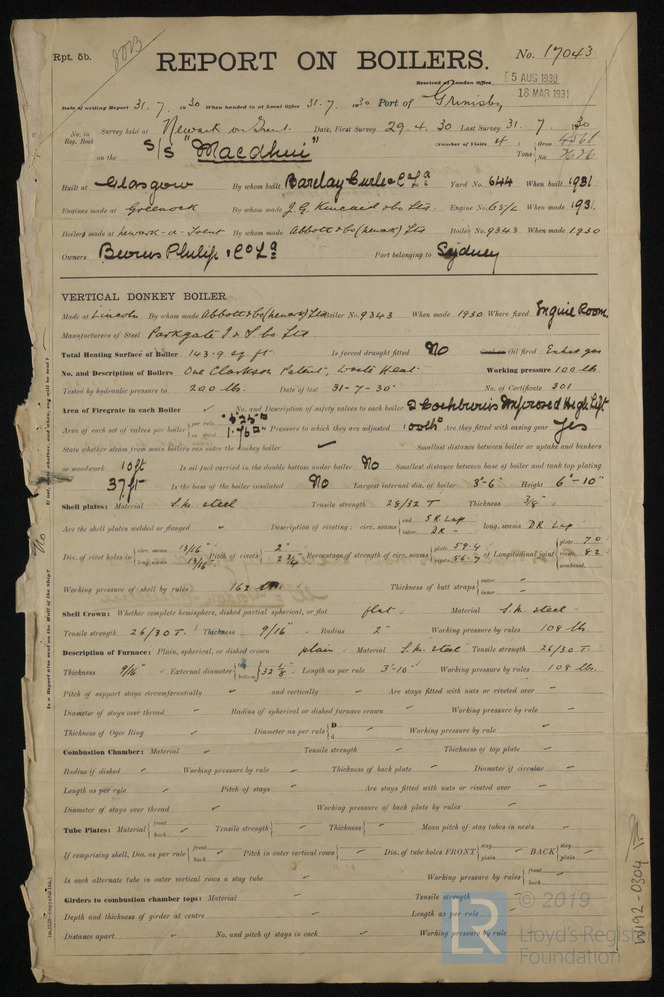 Rpt. 5b.
REPORT ON BOILERS.
No. 17043
Received at London Office
5 AUG 1930
18 MAR 1931
Date of writing Report 31. 7. 1930 When handed in at Local Office 31. 7. 1930 Port of Grimsby
No. in Reg. Book Survey held at Newark on Trent. Date, First Survey 29. 4. 30 Last Survey 31. 7. 1930
on the S/S "Macdhui" (Number of Visits 4) Tons Gross 4561 Net 2626
Built at Glasgow By whom built Barclay Curle & Co Ld Yard No. 644 When built 1931
Engines made at Greenock By whom made J. G. Kincaid & Co Ltd Engine No. When made 1931.
Boilers made at Newark-o-Trent By whom made Abbott & Co (Newark) Ltd Boiler No. 9343 When made 1930
Owners Burns Philp & Co Ld Port belonging to Sydney
VERTICAL DONKEY BOILER.
Made at Lincoln By whom made Abbott & Co (Newark) Ltd Boiler No. 9343 When made 1930 Where fixed Engine Room
Manufacturers of Steel Parkgate I & S Co Ltd
Total Heating Surface of Boiler 143.9 sq. ft. Is forced draught fitted No Coal or Oil fired Exhst gas
No. and Description of Boilers One Clarkson Patent, Waste Heat Working pressure 100 lb.
Tested by hydraulic pressure to 200 lbs. Date of test 31-7-30 No. of Certificate 301
Area of Firegrate in each Boiler ✓ No. and Description of safety valves to each boiler 2 Cockburn's Improved High Lift
Area of each set of valves per boiler per rule as fitted 1.76 Pressure to which they are adjusted 100 lbs Are they fitted with easing gear Yes
State whether steam from main boilers can enter the donkey boiler ✓ Smallest distance between boiler or uptake and bunkers
or woodwork 10 ft Is oil fuel carried in the double bottom under boiler No Smallest distance between base of boiler and tank top plating
37 ft Is the base of the boiler insulated No Largest internal dia. of boiler 3'-6" Height 6'-10"
Shell plates: Material S.M. steel Tensile strength 28/32 T Thickness 3/8"
Are the shell plates welded or flanged Description of riveting: circ. seams end S R. Lap inter. D R - long. seams D R Lap
Dia. of rivet holes in circ. seams 13/16" long. seams 13/16" Pitch of rivets 2" 2 3/4" Percentage of strength of circ. seams plate 59.4 rivets 56.7 of Longitudinal joint plate 70 rivets 82 combined.
Working pressure of shell by rules 162 lbs. Thickness of butt straps outer inner
Shell Crown: Whether complete hemisphere, dished partial spherical, or flat flat Material S.M. steel
Tensile strength 26/30 T. Thickness 9/16" Radius 2" Working pressure by rules 108 lb.
Description of Furnace: Plain, spherical, or dished crown plain Material S.M. steel Tensile strength 26/30 T
Thickness 9/16" External diameter top bottom 32 1/8 Length as per rule 3'-10" Working pressure by rules 108 lb.
Pitch of support stays circumferentially and vertically Are stays fitted with nuts or riveted over
Diameter of stays over thread Radius of spherical or dished furnace crown Working pressure by rule
Thickness of Ogee Ring Diameter as per rule D d Working pressure by rule
Combustion Chamber: Material Tensile strength Thickness of top plate
Radius if dished Working pressure by rule Thickness of back plate Diameter if circular
Length as per rule Pitch of stays Are stays fitted with nuts or riveted over
Diameter of stays over thread Working pressure of back plate by rules
Tube Plates: Material front back Tensile strength Thickness Mean pitch of stay tubes in nests
If comprising shell, Dia. as per rule front back Pitch in outer vertical rows Dia. of tube holes FRONT stay plain BACK stay plain
Is each alternate tube in outer vertical rows a stay tube Working pressure by rules front back
Girders to combustion chamber tops: Material Tensile strength
Depth and thickness of girder at centre Length as per rule
Distance apart No. and pitch of stays in each Working pressure by rule
Is a Report also sent on the Hull of the Ship? No
W192-0304
LR
© 2019
Lloyd's Register
Foundation